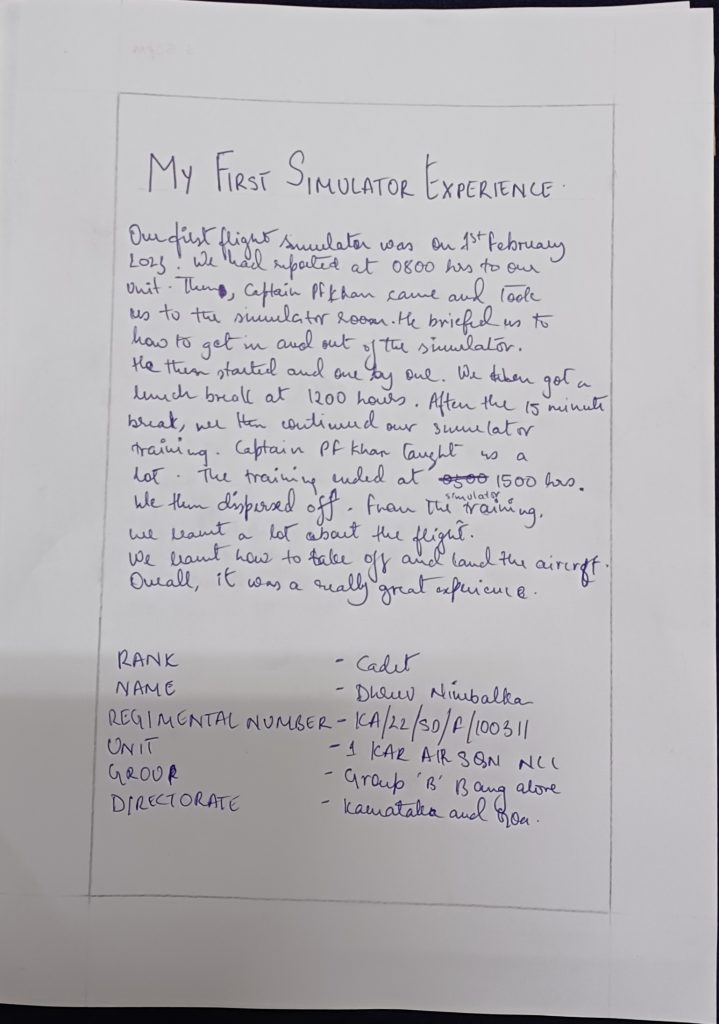 MY FIRST SIMULATOR EXPERIENCE.
Our first flight simulator was on 1st February
2023. We had reported at 0800 hrs to our
unit. Then, Captain PF Khan came and Took
us to the simulator room. He briefed us to
how to get in and out of the simulator.
He then started and one by one. We then got a
lunch break at 1200 hours. After the 15 minute
break, we then continued our simulator
training. Captain PF Khan taught us a
lot. The training ended at 1500 hrs.
We then dispersed off. From the simulator training,
we learnt a lot about the flight.
We learnt how to take off and land the aircrft.
Overall, it was a really great experience.
RANK - Cadet
NAME - Dhruv Nimbalka
REGIMENTAL NUMBER - KA/22/SD/F/100311
UNIT - 1 KAR AIR SQN NCC
GROUP - Group 'B' Bangalore
DIRECTORATE - Karnataka and Goa.